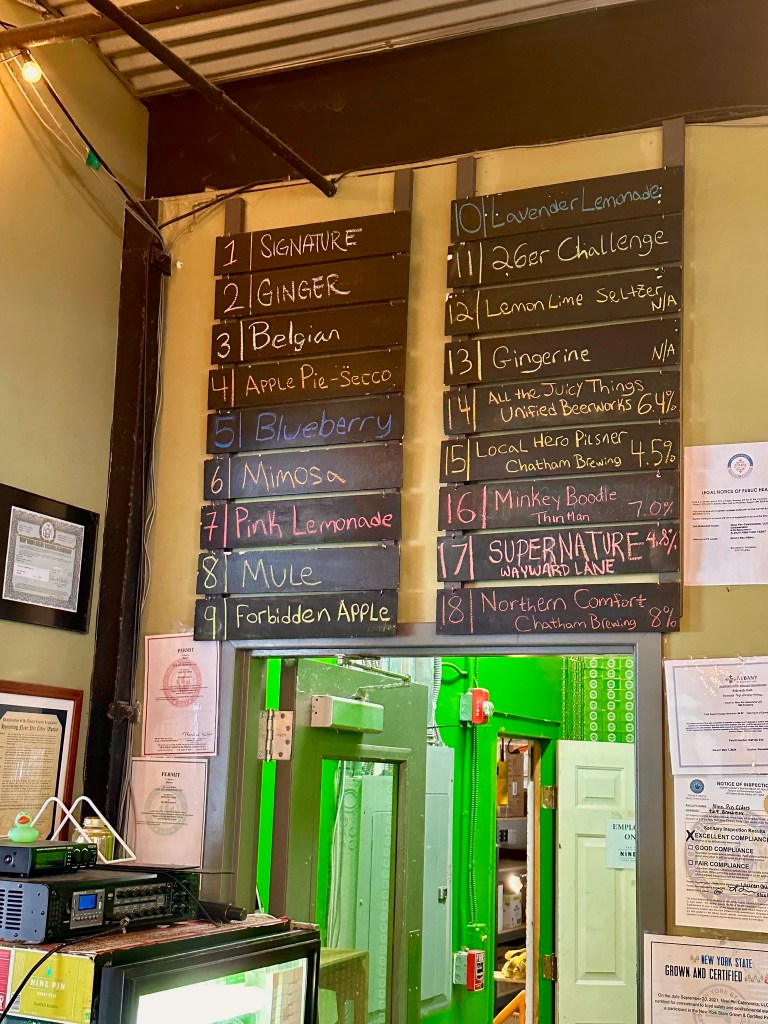 1 SIGNATURE
2 GINGER
3 Belgian
4 APPLE Pie-Secco
5 Blueberry
6 Mimosa
7 Pink Lemonade
8 MULE
9 Forbidden APPLE
10 Lavender Lemonade
11 26er Challenge
12 Lemon Lime Seltzer N/A
13 Gingerine N/A
14 All the Juicy Things
Unified Beerworks 6.4%
15 Local Hero Pilsner
Chatham Brewing 4.5%
16 Minkey Boodle 7.0%
Thin Man
17 SUPERNATURE 4.8%
WAYWARD LANE
18 Northern Comfort
Chatham Brewing 8%
LEGAL NOTICE OF PUBLIC HEA
PERMIT
PERMIT
ALBANY
NINE
NINE PIN
NOTICE OF INSPECTION
Nine Pin Ciders
Sanitary Inspection Results
X EXCELLENT COMPLIANCE
GOOD COMPLIANCE
FAIR COMPLIANCE
FIRE
NEW YORK STATE
GROWN AND CERTIFIED